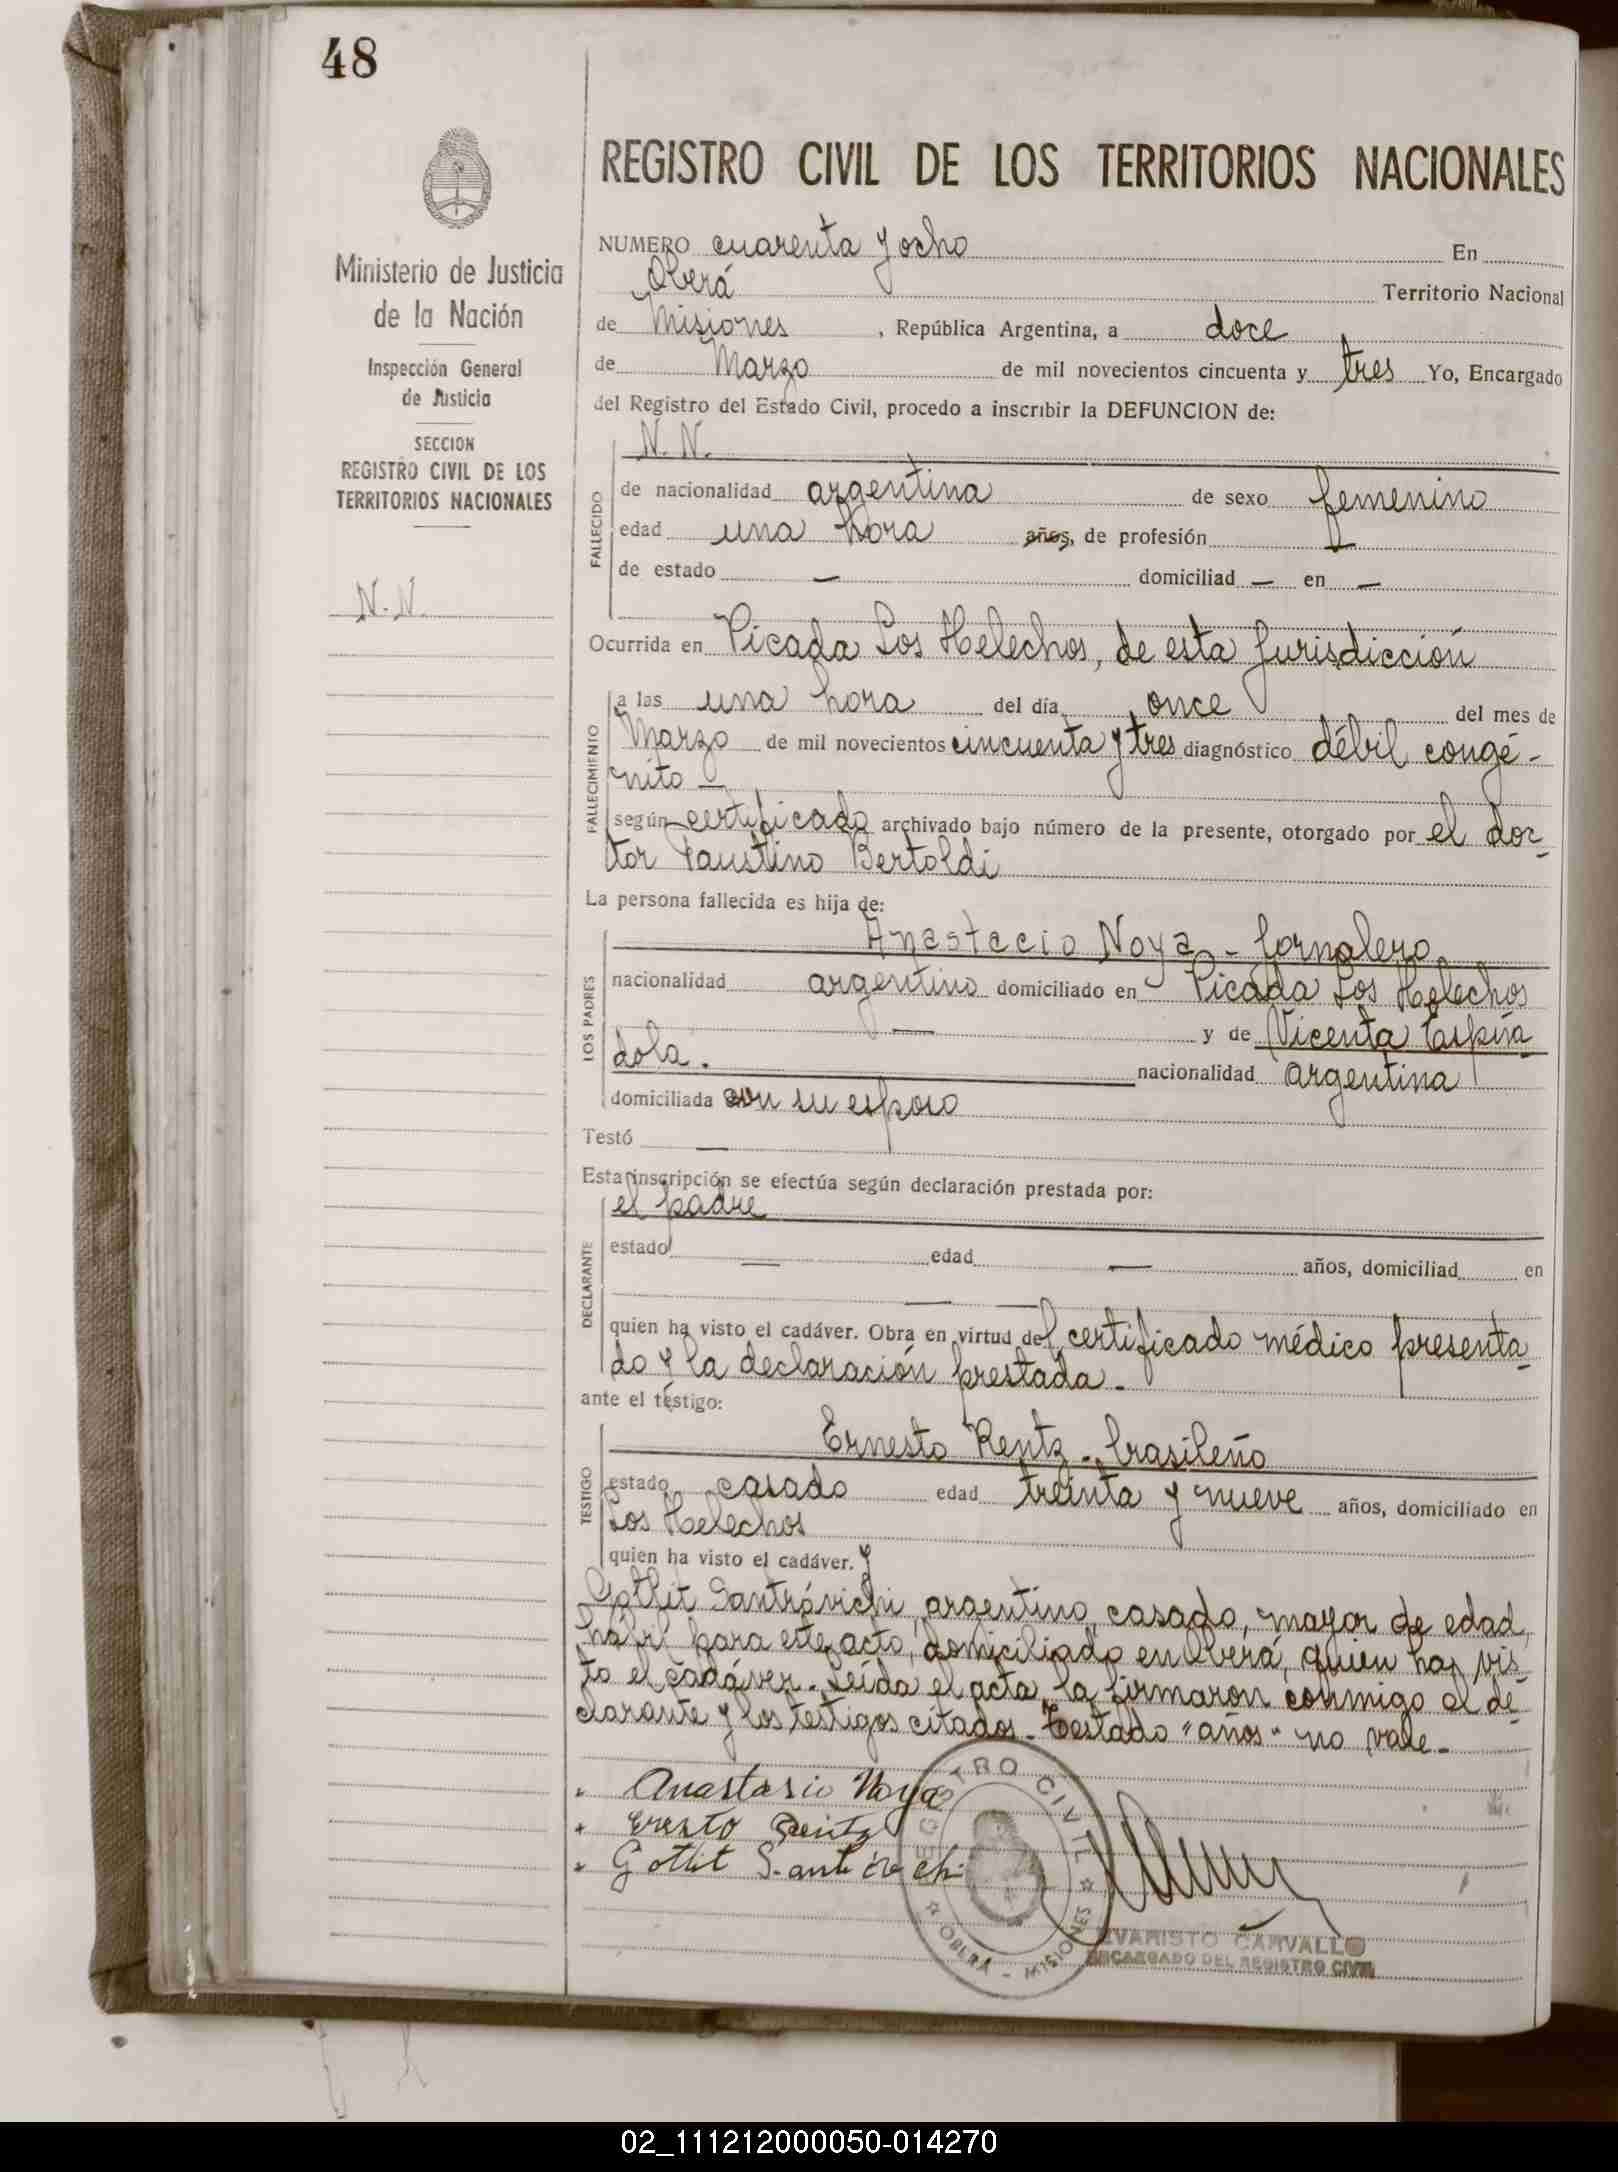 48
REGISTRO CIVIL DE LOS TERRITORIOS NACIONALES
Ministerio de Justicia
de la Nación
Inspección General
de Justicia
SECCION
REGISTRO CIVIL DE LOS
TERRITORIOS NACIONALES
N. N.
NUMERO cuarenta y ocho En
Oberá Territorio Nacional
de Misiones, República Argentina, a doce
de Marzo de mil novecientos cincuenta y tres Yo, Encargado
del Registro del Estado Civil, procedo a inscribir la DEFUNCION de:
N. N.
FALLECIDO
de nacionalidad argentina de sexo femenino
edad una hora años, de profesión —
de estado — domiciliad — en —
Ocurrida en Picada Los Helechos, de esta jurisdicción
FALLECIMIENTO
a las una hora del día once del mes de
Marzo de mil novecientos cincuenta y tres diagnóstico débil congé-
nito —
según certificado archivado bajo número de la presente, otorgado por el doc-
tor Faustino Bertoldi
La persona fallecida es hija de:
LOS PADRES
Anastacio Noya - jornalero
nacionalidad argentino domiciliado en Picada Los Helechos
— y de Vicenta Espín-
dola. nacionalidad argentina
domiciliada con su esposo
Testó —
Esta inscripción se efectúa según declaración prestada por:
DECLARANTE
el padre
estado — edad — años, domiciliad en
— —
quien ha visto el cadáver. Obra en virtud del certificado médico presenta-
do y la declaración prestada.-
ante el testigo:
TESTIGO
Ernesto Rentz - brasileño
estado casado edad treinta y nueve años, domiciliado en
Los Helechos
quien ha visto el cadáver. y
Gotlit Santróvichi, argentino, casado, mayor de edad,
hábil para este acto, domiciliado en Oberá, quien ha vis-
to el cadáver. Leída el acta la firmaron conmigo el de-
clarante y los testigos citados.- Testado "años" no vale.-
Anastasio Noya
Gotlit
REGISTRO CIVIL
OBERÁ - MISIONES
EVARISTO CARVALLO
ENCARGADO DEL REGISTRO CIVIL
02_111212000050-014270